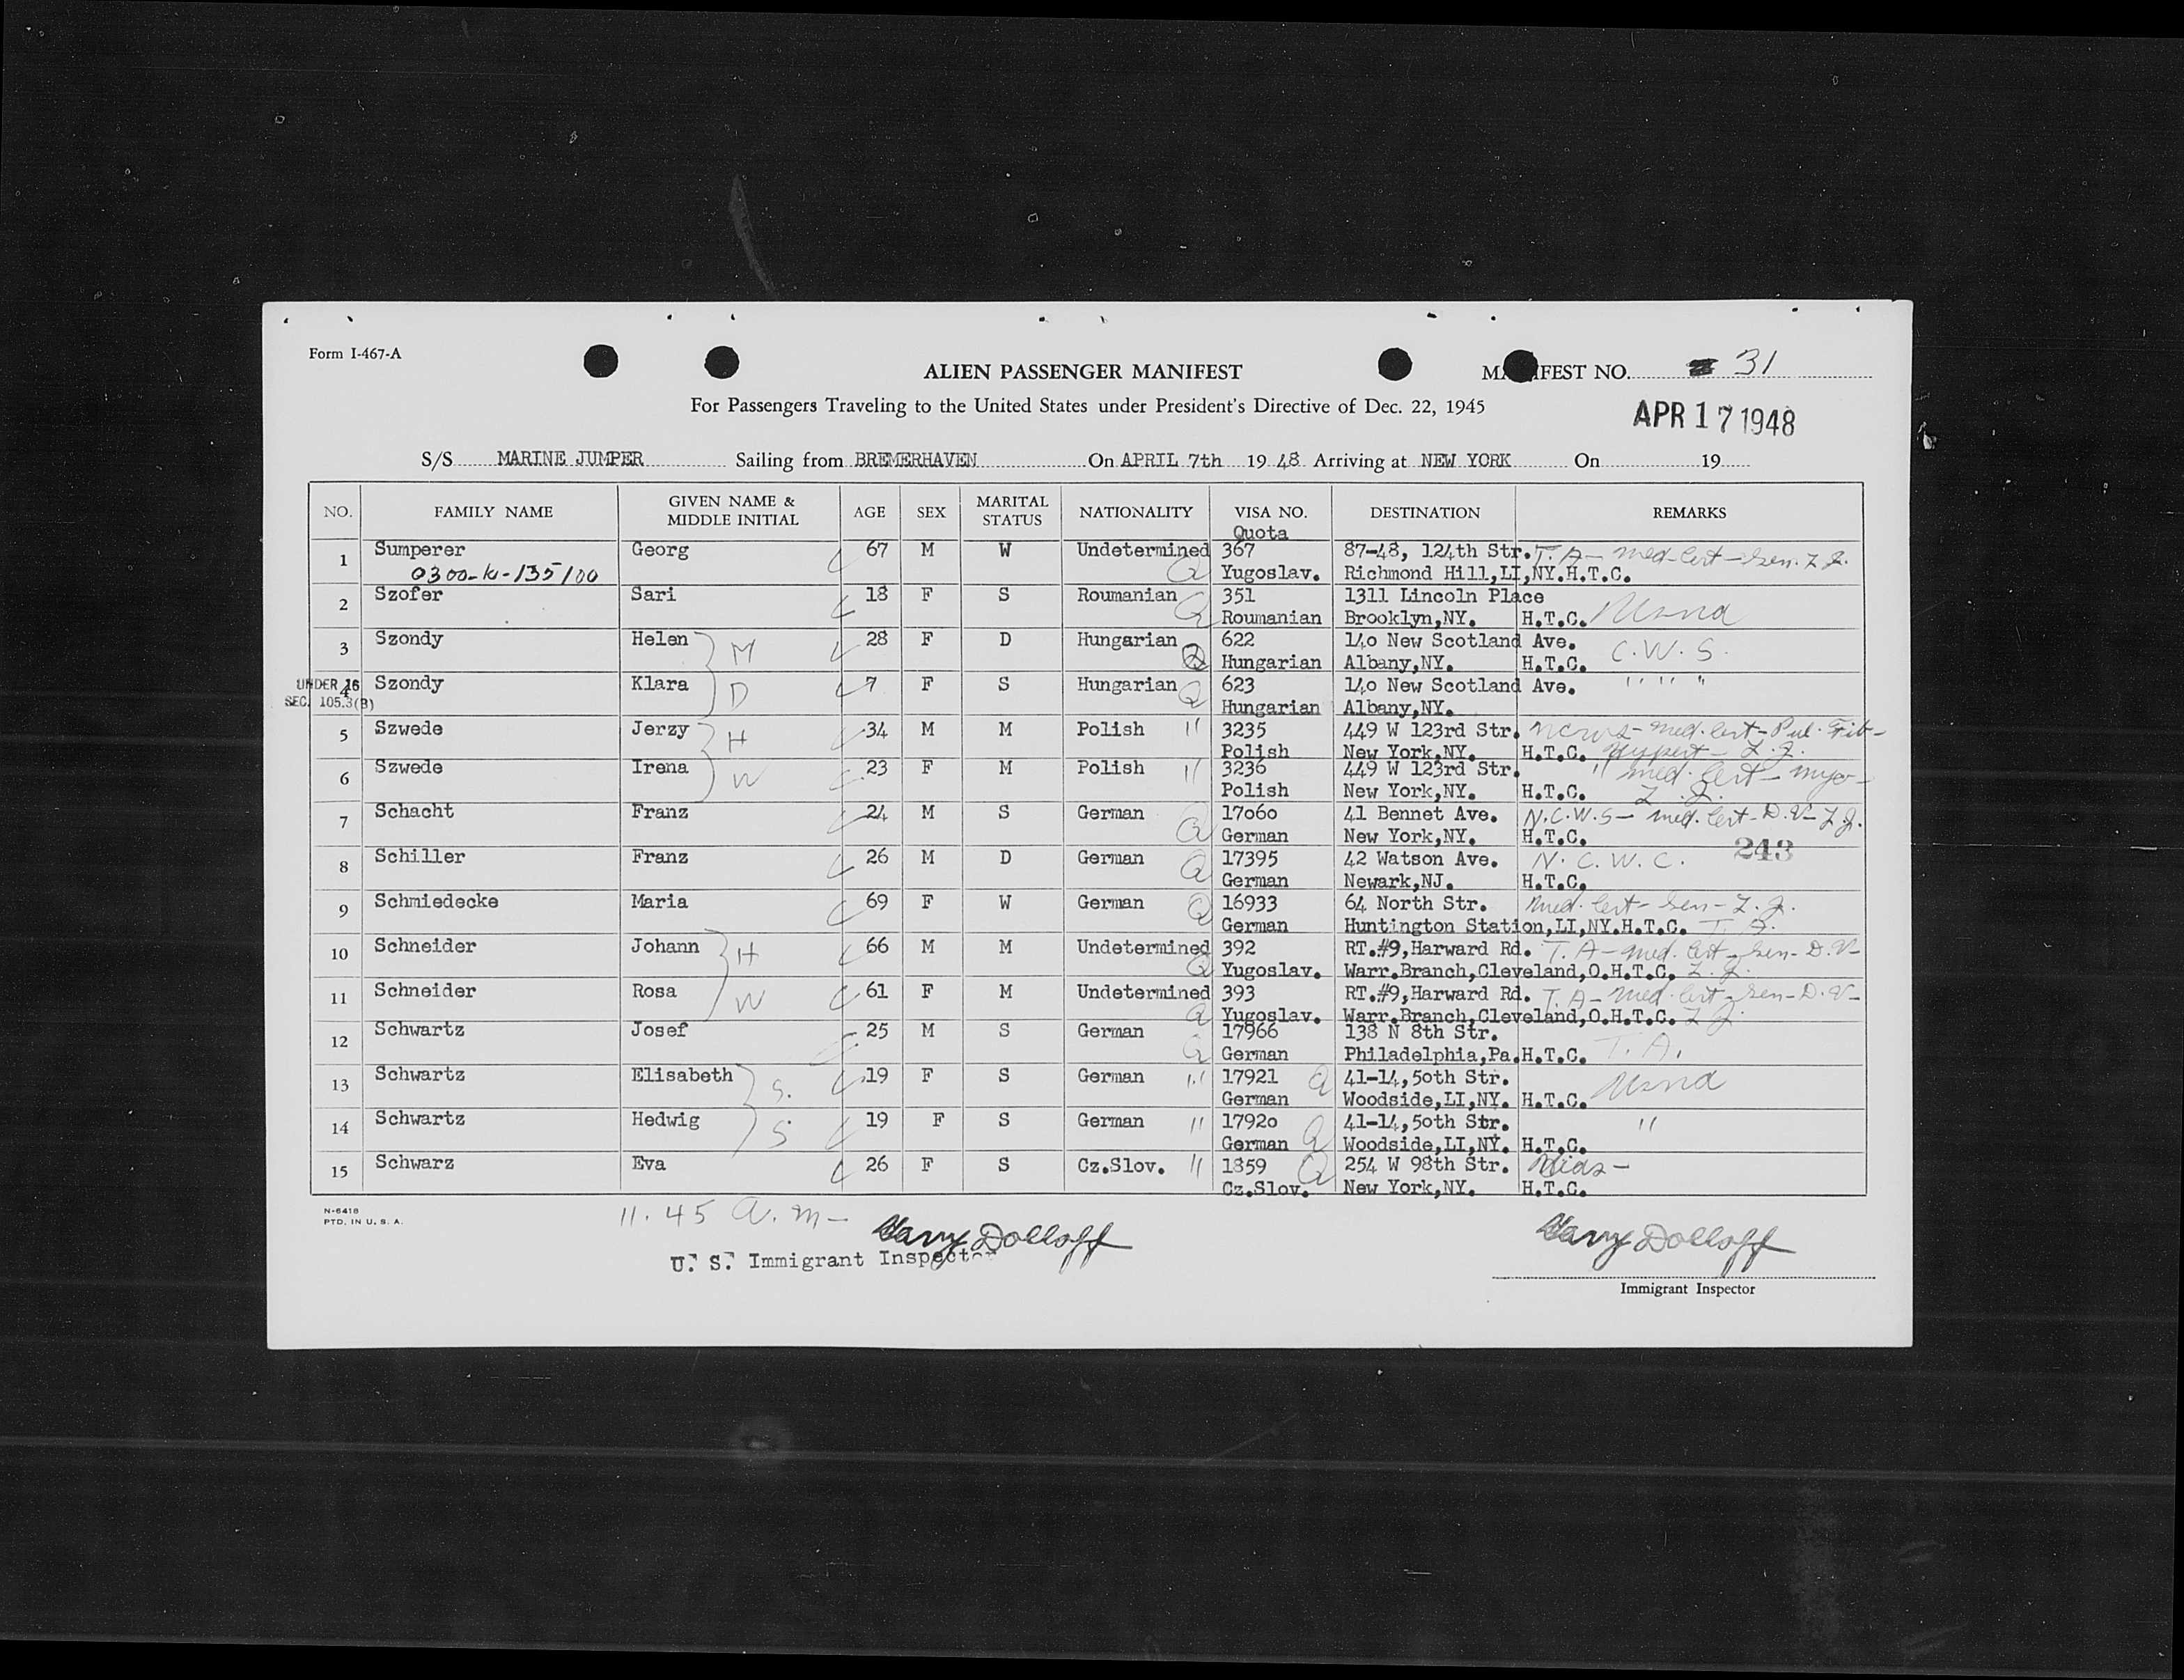 Form I-467-A
ALIEN PASSENGER MANIFEST
MANIFEST NO. 31
For Passengers Traveling to the United States under President's Directive of Dec. 22, 1945
APR 17 1948
S/S MARINE JUMPER Sailing from BREMERHAVEN On APRIL 7th 19 48 Arriving at NEW YORK On 19
NO. FAMILY NAME GIVEN NAME & MIDDLE INITIAL AGE SEX MARITAL STATUS NATIONALITY VISA NO. DESTINATION REMARKS
Quota
1 Sumperer Georg 67 M W Undetermined 367 87-48, 124th Str. T. A- med-Cert-Sen. Z. J.
0300-K-135100 Q Yugoslav. Richmond Hill,LI,NY.H.T.C.
2 Szofer Sari 18 F S Roumanian 351 1311 Lincoln Place
Q Roumanian Brooklyn,NY. H.T.C. Usna
3 Szondy Helen M 28 F D Hungarian 622 14o New Scotland Ave. C.W.S.
Q Hungarian Albany,NY. H.T.C.
UNDER 16
SEC. 105.3(B)
4 Szondy Klara D 7 F S Hungarian 623 14o New Scotland Ave. " " "
Q Hungarian Albany,NY.
5 Szwede Jerzy H 34 M M Polish " 3235 449 W 123rd Str. ncws- med. Cert- Pul. Fib-
Polish New York,NY. H.T.C. Hypert- Z. J.
6 Szwede Irena W 23 F M Polish " 3236 449 W 123rd Str. " med. Cert- myo-
Polish New York,NY. H.T.C. Z. J.
7 Schacht Franz 24 M S German 17o6o 41 Bennet Ave. N.C.W.S- med. Cert- D.V- Z. J.
Q German New York,NY. H.T.C.
243
8 Schiller Franz 26 M D German 17395 42 Watson Ave. N. C. W. C.
Q German Newark,NJ. H.T.C.
9 Schmiedecke Maria 69 F W German 16933 64 North Str. med. Cert- Sen- Z. J.
Q German Huntington Station,LI,NY.H.T.C. T. A.
10 Schneider Johann H 66 M M Undetermined 392 RT.#9,Harward Rd. T. A- med. Cert- Sen- D.V-
Q Yugoslav. Warr.Branch,Cleveland,O.H.T.C. Z. J.
11 Schneider Rosa W 61 F M Undetermined 393 RT.#9,Harward Rd. T. A- med. Cert- Sen- D.V-
Q Yugoslav. Warr.Branch,Cleveland,O.H.T.C. Z. J.
12 Schwartz Josef 25 M S German 17966 138 N 8th Str.
Q German Philadelphia,Pa.H.T.C. T. A.
13 Schwartz Elisabeth S. 19 F S German " 17921 Q 41-14,5oth Str.
German Woodside,LI,NY. H.T.C. Usna
14 Schwartz Hedwig S 19 F S German " 1792o Q 41-14,5oth Str. "
German Woodside,LI,NY. H.T.C.
15 Schwarz Eva 26 F S Cz.Slov. " 1859 Q 254 W 98th Str.
Cz.Slov. New York,NY. H.T.C.
N-6418
PTD. IN U. S. A.
11.45 a.m- Harry Dolloff
U. S. Immigrant Inspector
Harry Dolloff
Immigrant Inspector